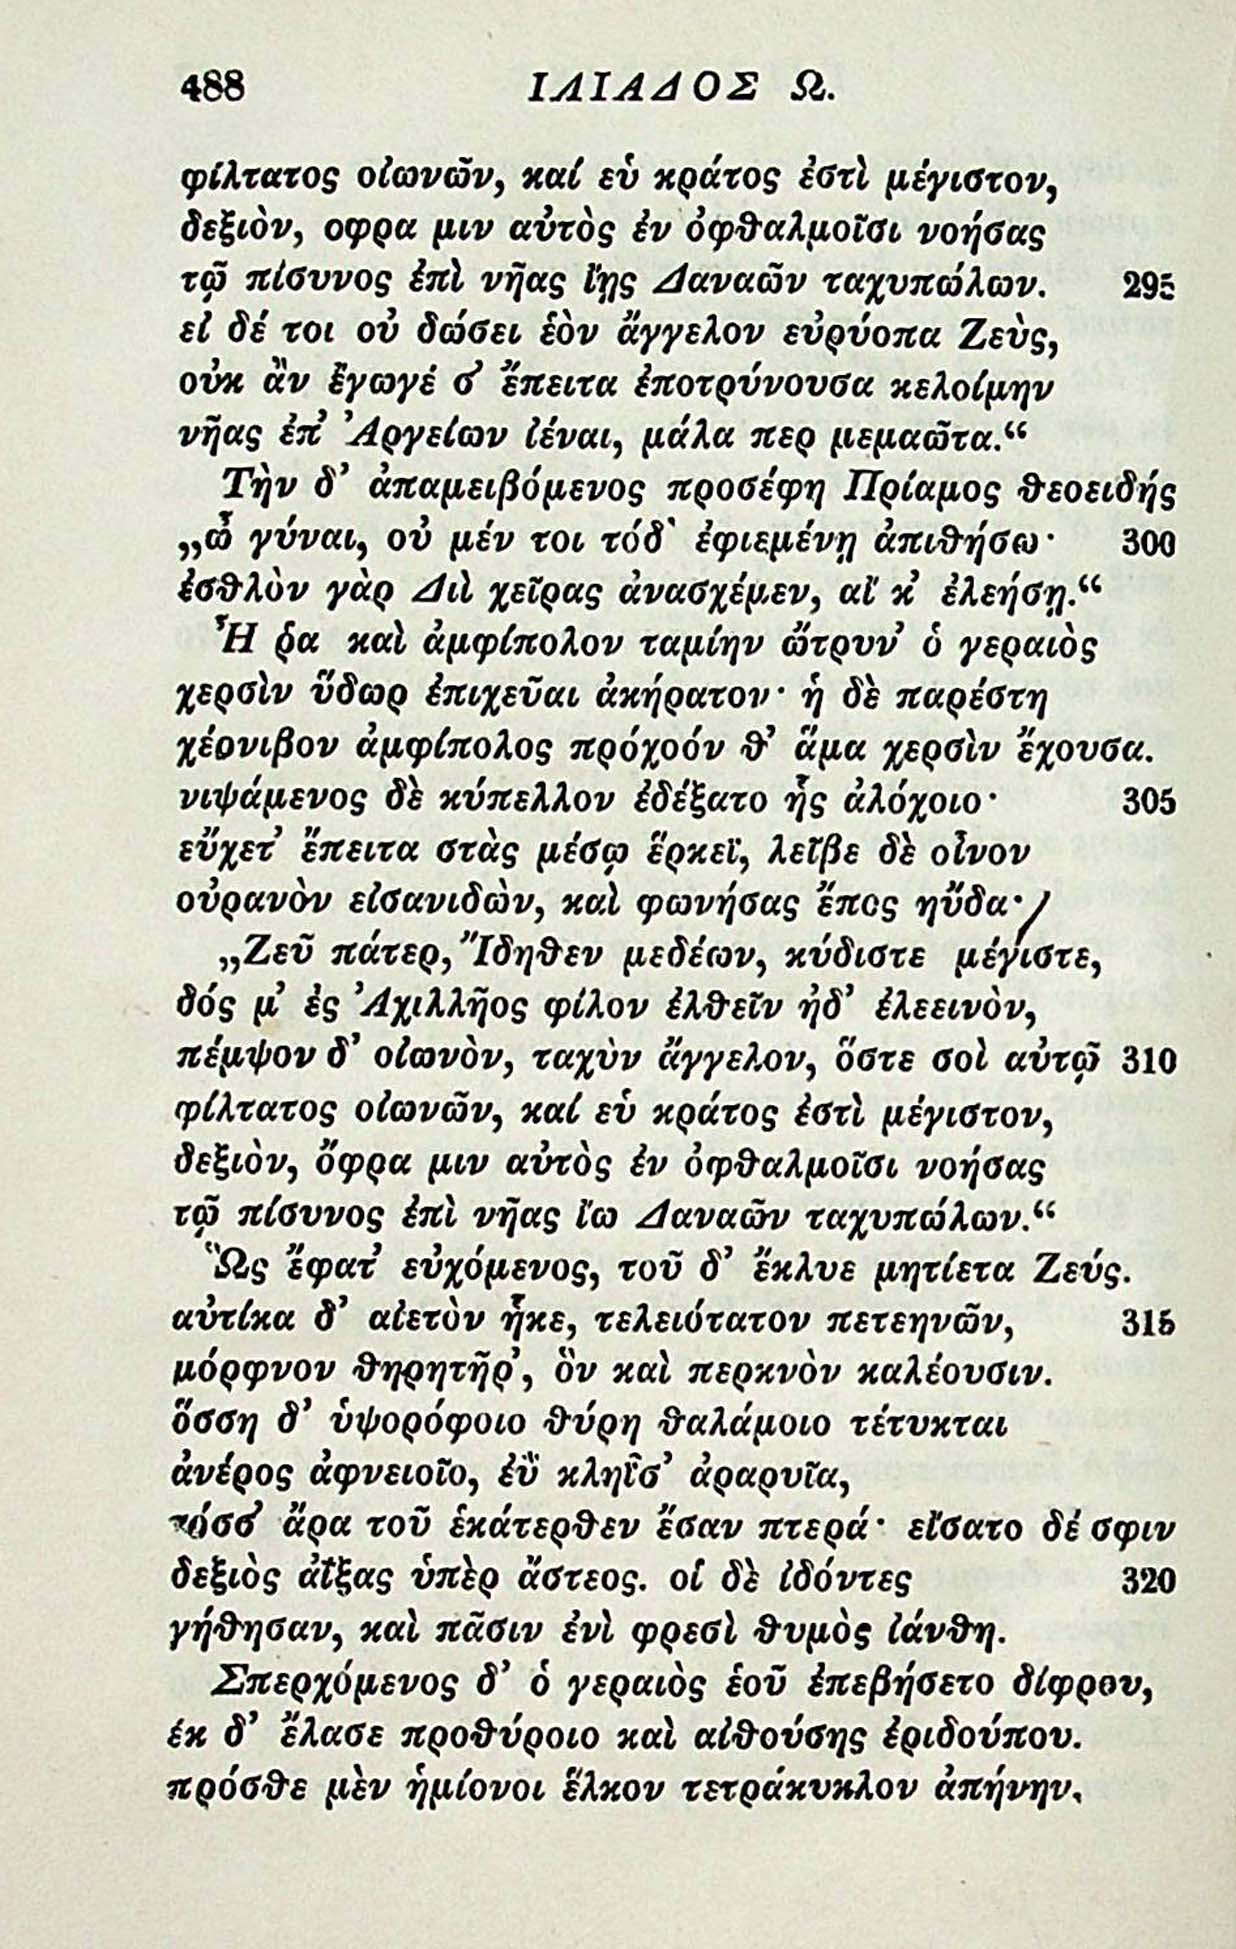 488 ΙΛΙΑΔΟΣ Ω.
φίλτατος οἰωνῶν, καί εὑ κράτος ἐστὶ μέγιστον,
δεξιὸν, οφρα μιν αὐτὸς ἐν ὀφθαλμοῖσι νοήσας
τῷ πίσυνος ἐπὶ νῆας ἴῃς Δαναῶν ταχυπώλων. 295
εἰ δέ τοι οὐ δώσει ἑὸν ἄγγελον εὐρύοπα Ζεὺς,
οὐκ ἂν ἔγωγέ σ’ ἔπειτα ἐποτρύνουσα κελοίμην
νῆας ἐπ’ Ἀργείων ἰέναι, μάλα περ μεμαῶτα.“
Τὴν δ’ ἀπαμειβόμενος προσέφη Πρίαμος θεοειδής
„ὦ γύναι, οὐ μέν τοι τόδ’ ἐφιεμένῃ ἀπιθήσω· 300
ἐσθλὸν γὰρ Διὶ χεῖρας ἀνασχέμεν, αἴ κ’ ἐλεήσῃ.“
Ἦ ῥα καὶ ἀμφίπολον ταμίην ὤτρυν’ ὁ γεραιὸς
χερσὶν ὕδωρ ἐπιχεῦαι ἀκήρατον· ἡ δὲ παρέστη
χέρνιβον ἀμφίπολος πρόχοόν θ’ ἅμα χερσὶν ἔχουσα.
νιψάμενος δὲ κύπελλον ἐδέξατο ἧς ἀλόχοιο· 305
εὔχετ’ ἔπειτα στὰς μέσῳ ἕρκεϊ, λεῖβε δὲ οἶνον
οὐρανὸν εἰσανιδὼν, καὶ φωνήσας ἔπος ηὔδα·
„Ζεῦ πάτερ, Ἴδηθεν μεδέων, κύδιστε μέγιστε,
δός μ’ ἐς Ἀχιλλῆος φίλον ἐλθεῖν ἠδ’ ἐλεεινὸν,
πέμψον δ’ οἰωνὸν, ταχὺν ἄγγελον, ὅστε σοὶ αὐτῷ 310
φίλτατος οἰωνῶν, καί εὑ κράτος ἐστὶ μέγιστον,
δεξιὸν, ὄφρα μιν αὐτὸς ἐν ὀφθαλμοῖσι νοήσας
τῷ πίσυνος ἐπὶ νῆας ἴω Δαναῶν ταχυπώλων.“
Ὣς ἔφατ’ εὐχόμενος, τοῦ δ’ ἔκλυε μητίετα Ζεύς.
αὐτίκα δ’ αἰετὸν ἧκε, τελειότατον πετεηνῶν, 315
μόρφνον θηρητῆρ’, ὃν καὶ περκνὸν καλέουσιν.
ὅσση δ’ ὑψορόφοιο θύρη θαλάμοιο τέτυκται
ἀνέρος ἀφνειοῖο, ἐῢ κληῗσ’ ἀραρυῖα,
τόσσ’ ἄρα τοῦ ἑκάτερθεν ἔσαν πτερά· εἴσατο δέ σφιν
δεξιὸς ἀΐξας ὑπὲρ ἄστεος. οἱ δὲ ἰδόντες 320
γήθησαν, καὶ πᾶσιν ἐνὶ φρεσὶ θυμὸς ἰάνθη.
Σπερχόμενος δ’ ὁ γεραιὸς ἑοῦ ἐπεβήσετο δίφρου,
ἐκ δ’ ἔλασε προθύροιο καὶ αἰθούσης ἐριδούπου.
πρόσθε μὲν ἡμίονοι ἕλκον τετράκυκλον ἀπήνην,